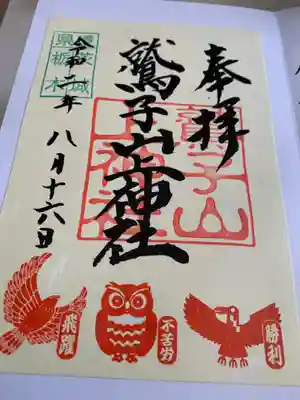 奉拝
鷲子山上神社
鷲子山
上神社
令和二年
八月十六日
飛躍
不苦労
勝利